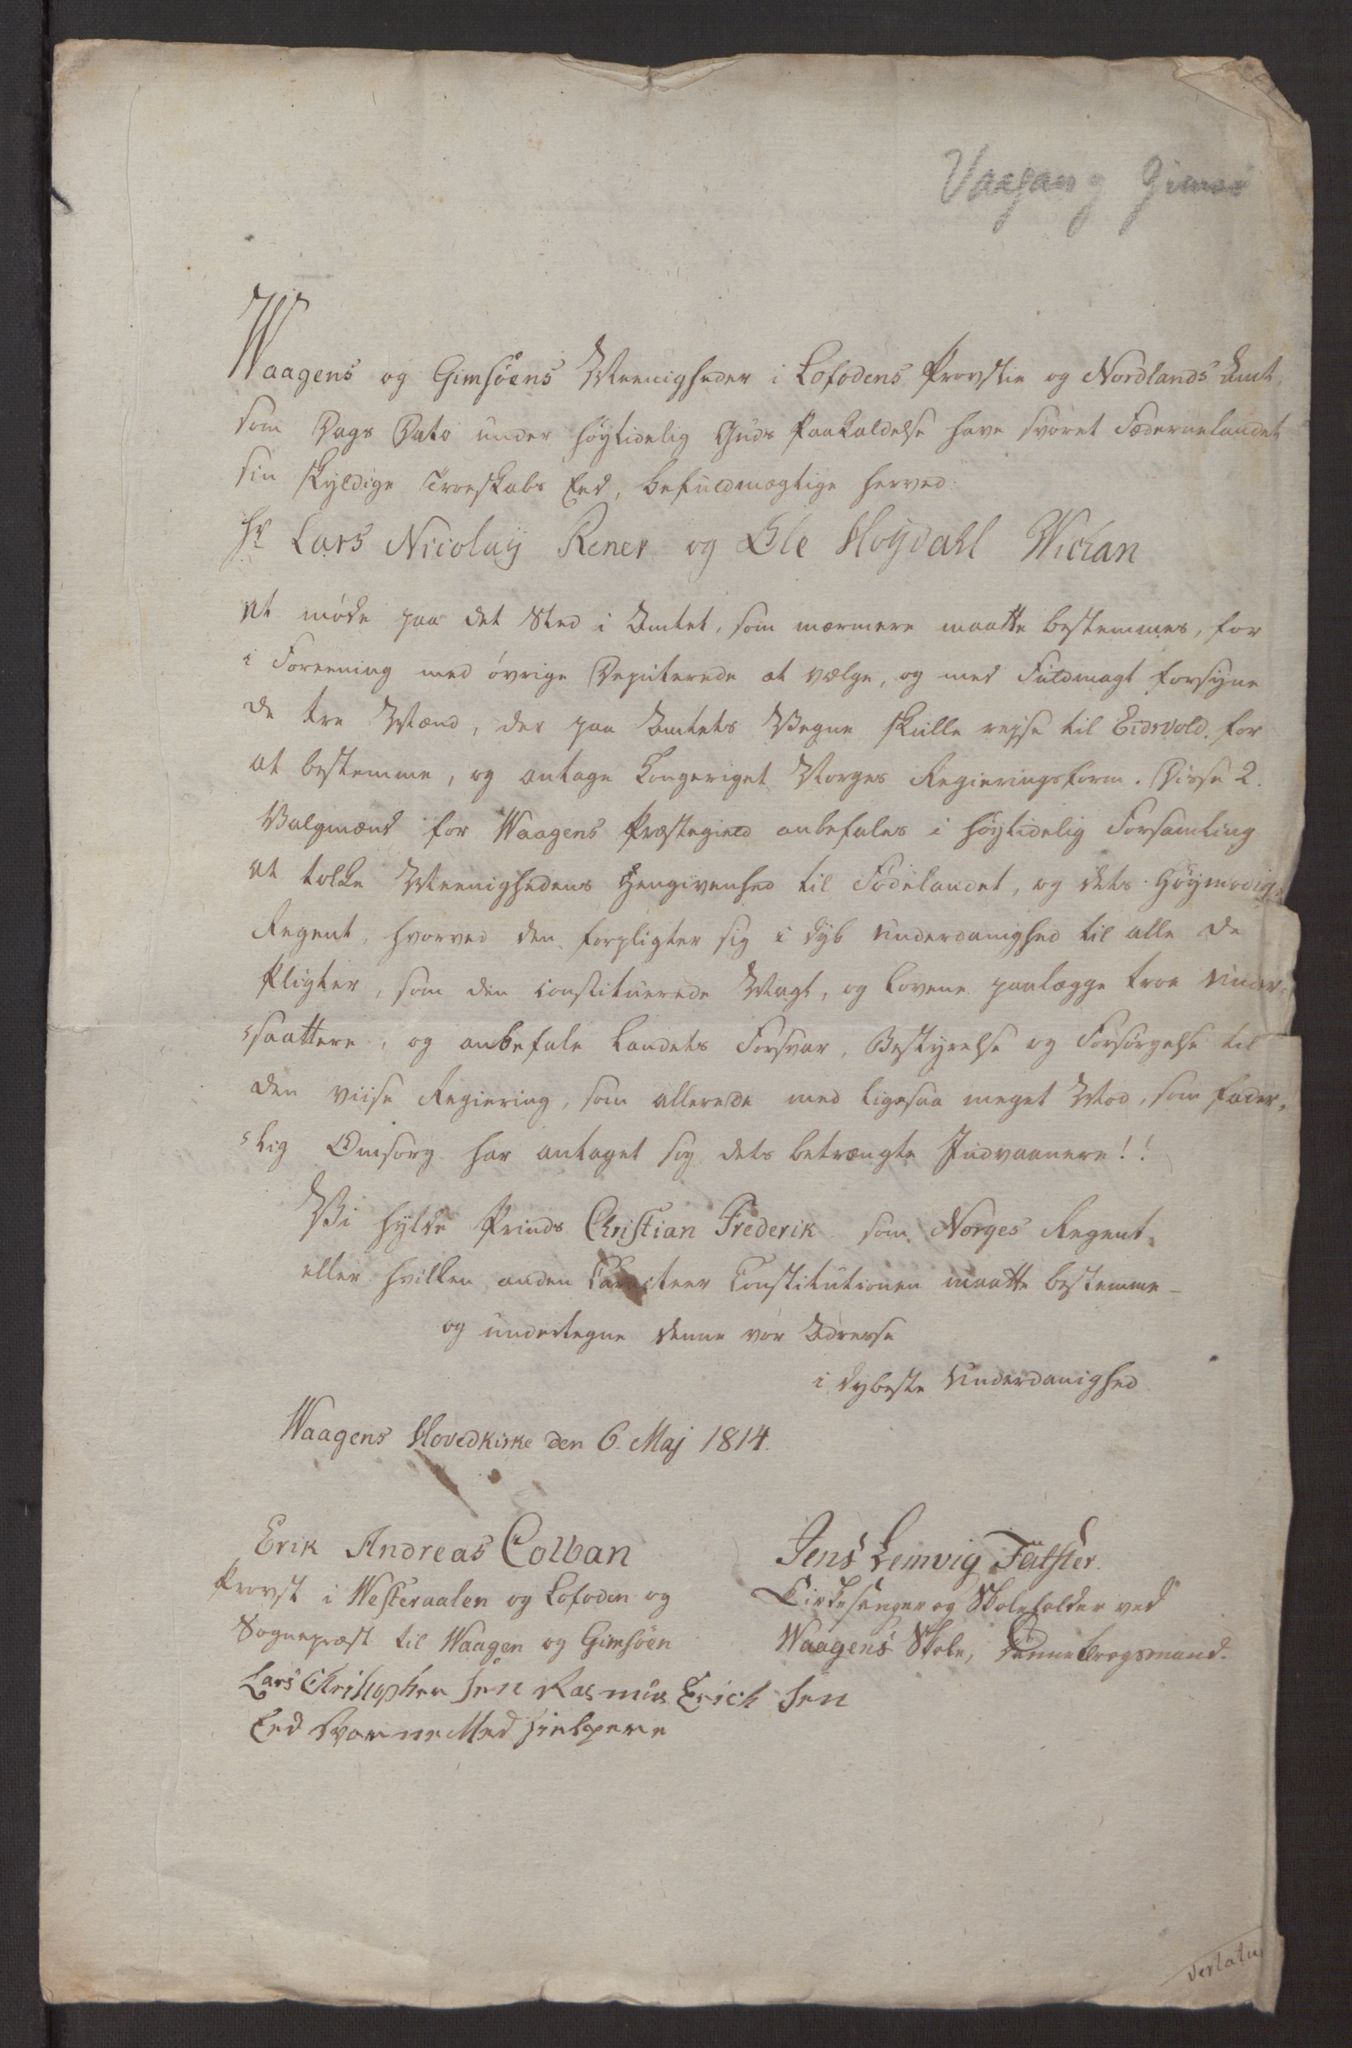 Vaagan og Gimsø
Waagens og Gimsöens Meenigheder i Lofodens Provstie og Nordlands Amt,
som Dags Dato under høytidelig Guds Paakaldelse have svoret Fædernelandet
sin skyldige Troeskabs Eed, befuldmægtige herved:
Hr Lars Nicolay Rener og Ole Høydahl Wickan
at møde paa det Sted i Amtet, som nærmere maatte bestemmes, for
i Foreening med øvrige Deputerede at vælge, og med Fuldmagt forsyne
de tre Mænd, der paa Amtets Vegne skulle reyse til Eidsvold, for
at bestemme, og antage Kongeriget Norges Regieringsform. Disse 2.
Valgmænd for Waagens Præstegield anbefales i høytidelig Forsamling
at tolke Meenighedens Hengivenhed til Fødelandet, og dets Høymodige
Regent, hvorved den forpligter sig i dyb Underdanighed til alle de
Pligter, som den constituerede Magt, og Lovene paalægge troe Under-
saattere, og anbefale Landets Forsvar, Bestyrelse og Forsørgelse til
den viise Regiering, som allerede med ligesaa meget Mod, som fader-
lig Omsorg har antaget sig dets betrængte Indvaanere!!
Vi hylde Prinds Christian Frederik som Norges Regent
eller hvilken anden Caracteer Constitutionen maatte bestemme –
og undertegne denne vor Adresse
i dybeste Underdanighed
Waagens Hovedkirke den 6. Maj 1814.
Erik Andreas Colban
Provst i Westeraalen og Lofoden og
Sognepræst til Waagen og Gimsöen
Jens Lemvig Fütster.
Kirkesanger og Skoleholder ved
Waagens Skole, Dannebrogsmand.
Lars Christopher sen Rasmus Erich sen
Eed Svorne Med hielpere
vertatur